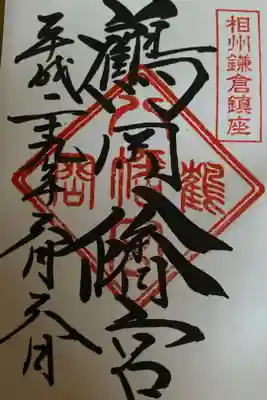 相州鎌倉鎮座
鶴岡八幡宮
鶴岡八幡宮
平成二十九年六月